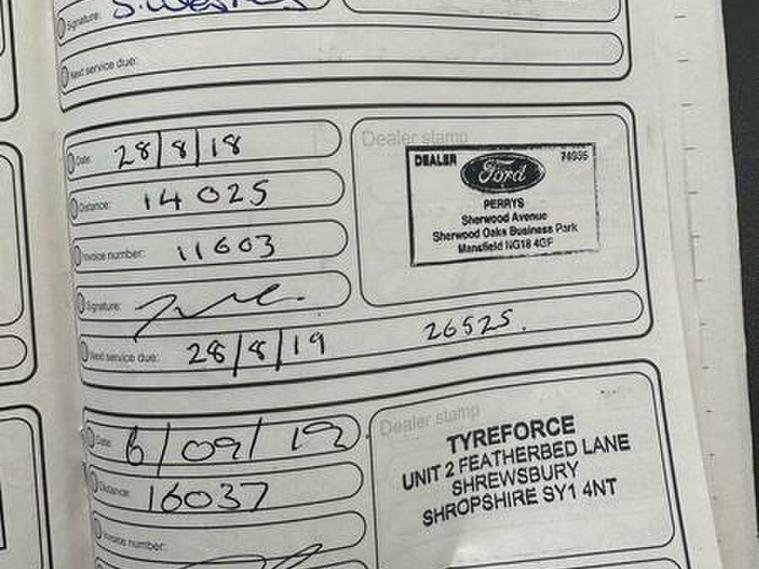 Signature:
Next service due:
Date: 28/8/18
Distance: 14025
Invoice number: 11603
Signature:
Next service due: 28/8/19 26525.
Dealer stamp
DEALER Ford 74935
PERRYS
Sherwood Avenue
Sherwood Oaks Business Park
Mansfield NG18 4GF
Date: 6/09/19
Distance: 16037
Invoice number:
Dealer stamp
TYREFORCE
UNIT 2 FEATHERBED LANE
SHREWSBURY
SHROPSHIRE SY1 4NT